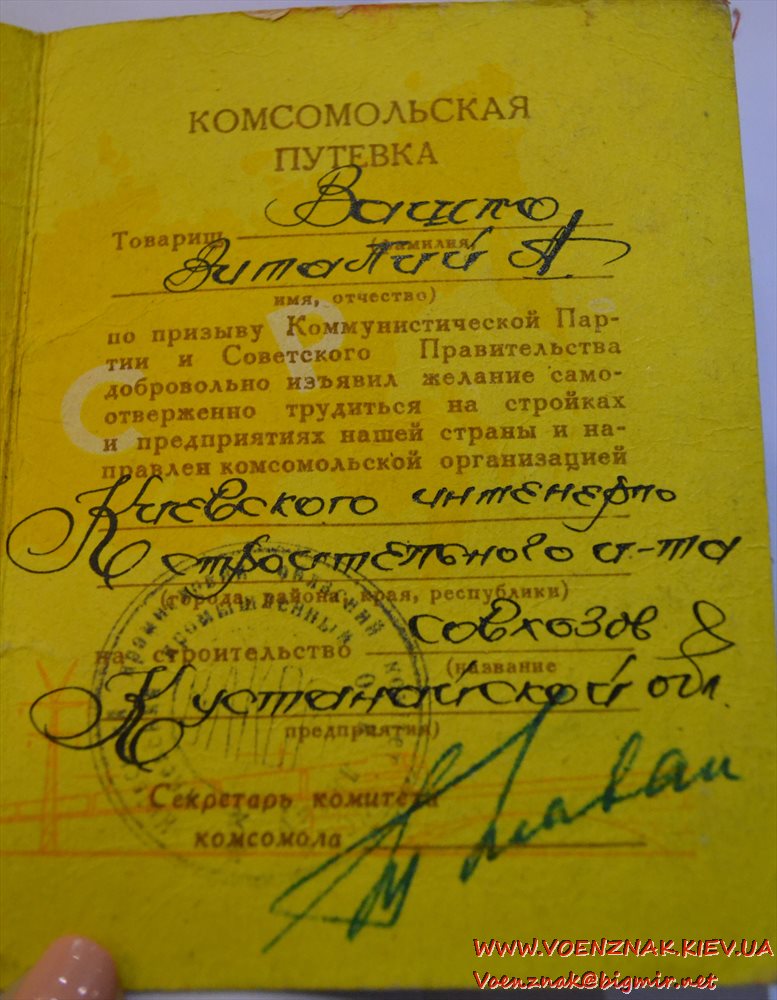 КОМСОМОЛЬСКАЯ
ПУТЕВКА
Товарищ
(фамилия)
Виталий А.
имя, отчество)
по призыву Коммунистической Пар-
тии и Советского Правительства
добровольно изъявил желание само-
отверженно трудиться на стройках
и предприятиях нашей страны и на-
правлен комсомольской организацией
Киевского инженерно
строительного и-та
(города, района, края, республики)
на строительство совхозов в
(название
Кустанайской обл.
предприятия)
Секретарь комитета
комсомола
WWW.VOENZNAK.KIEV.UA
Voenznak@bigmir.net